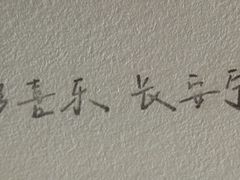 喜乐 长安宁